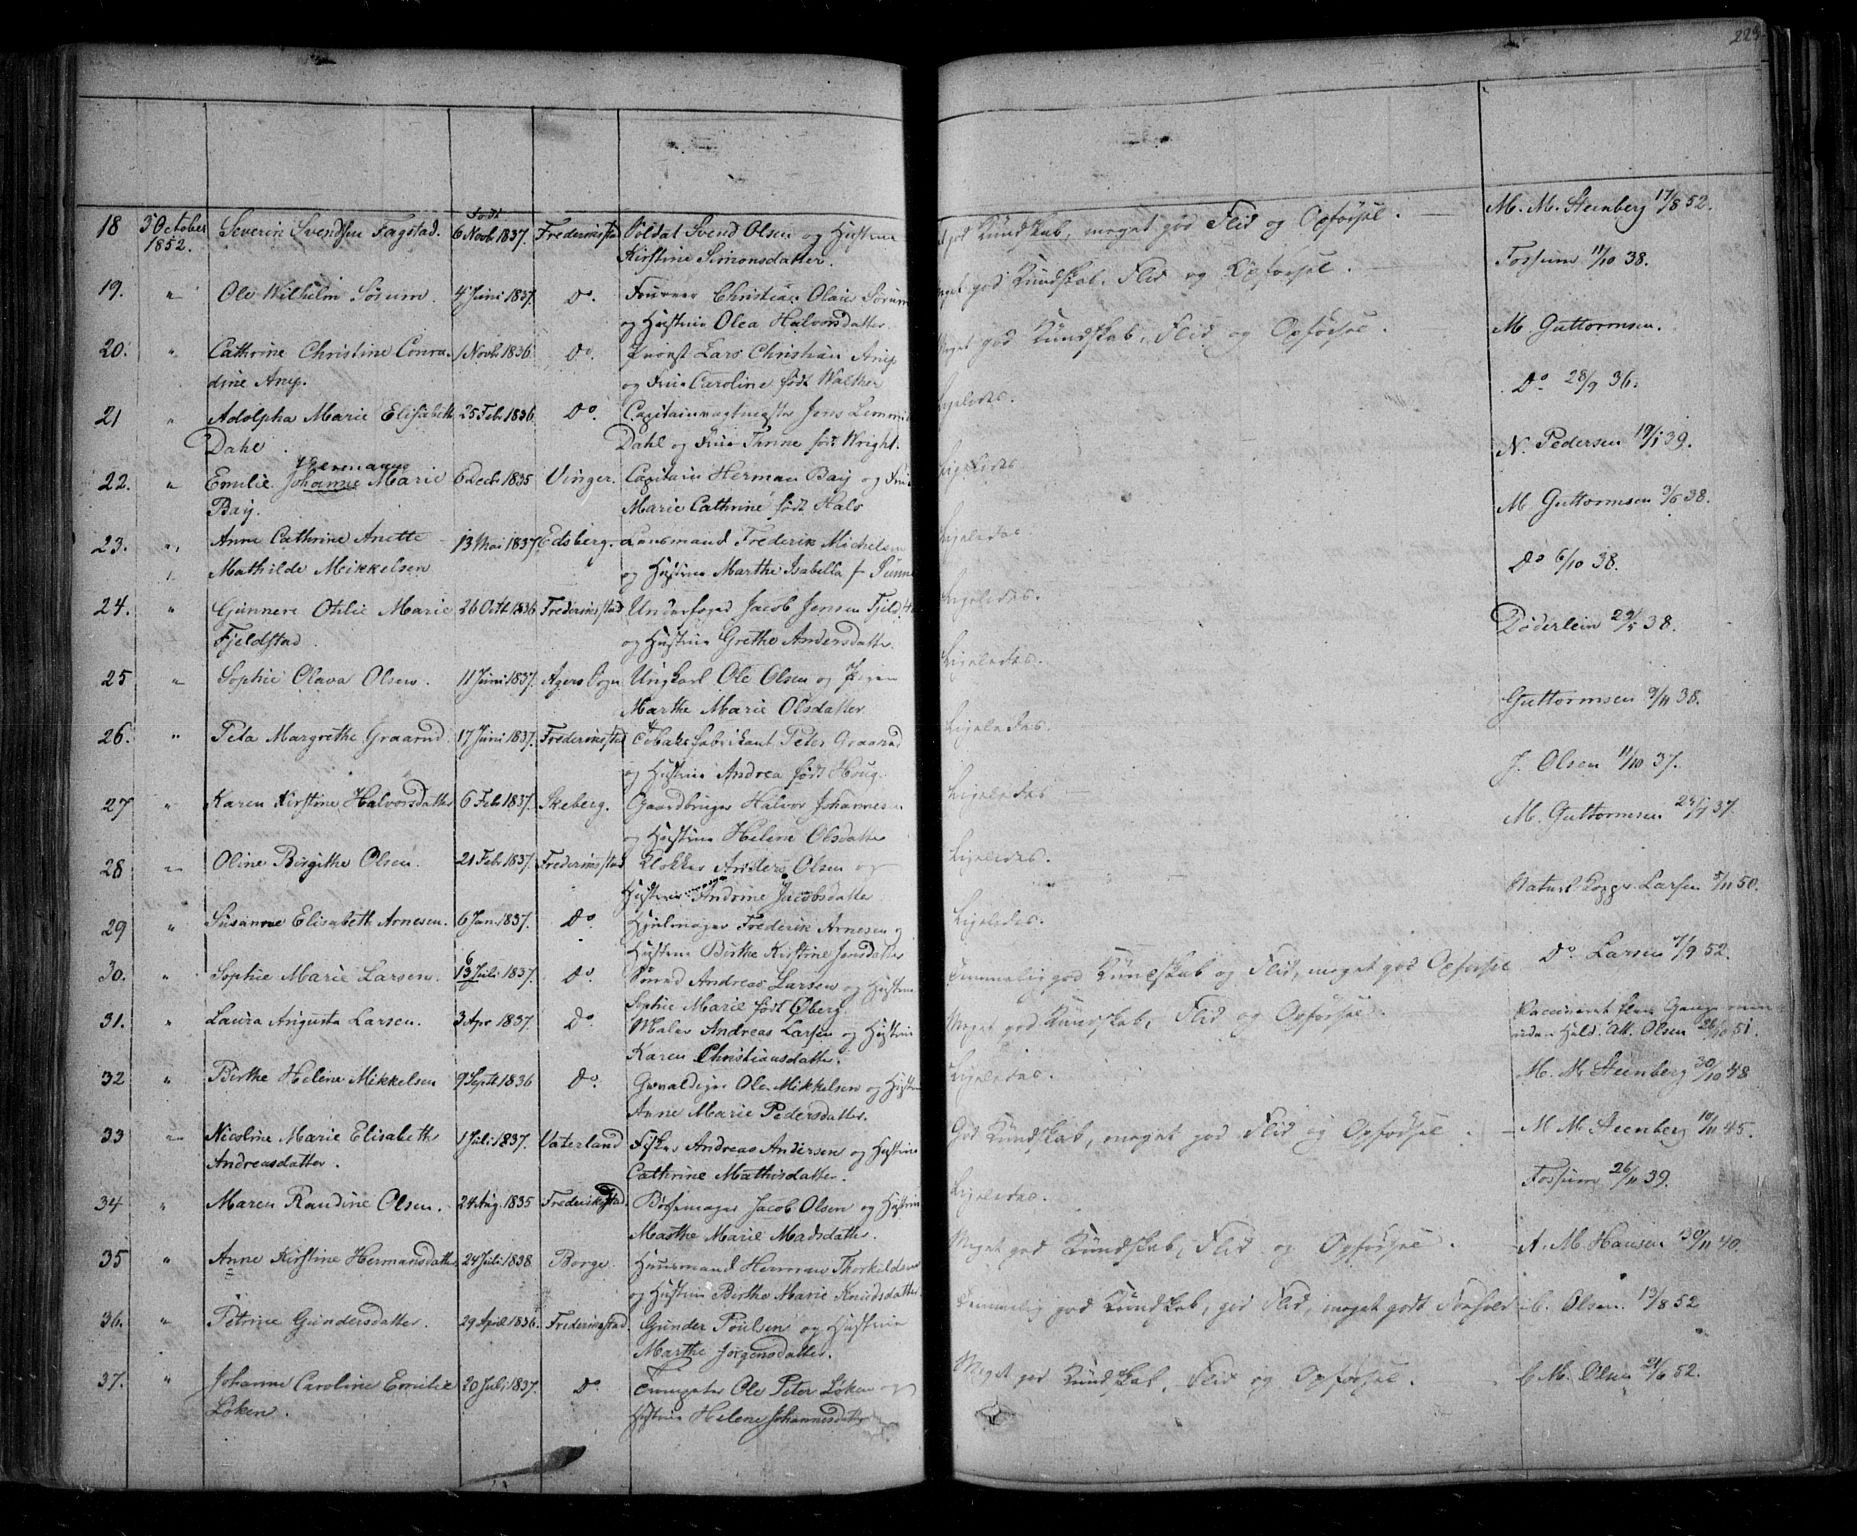 223
18 3 October Severin Svendsen Fagstad. Født 6 Novbr 1837. Fredriksstad Soldat Svend Olsen og Hustrue god Kundskab, meget god Flid og Opførsel. M. M. Steenberg 17/8 52.
1852. Kirstine Simonsdatter.
19. " Ole Wilhelm Sørum. 4 Juni 1837. Do. Christian Olaus Sørum Meget god Kundskab, Flid og Opførsel. Fossum 11/10 38.
og Hustrue Olea Halvorsdatter
20. " Cathrine Christine Conra- 1 Novbr 1836. Do. Provst Lars Christian Arup Meget god Kundskab, Flid og Opførsel. M Guttormsen.
dine Arup. og Frue Caroline født Walker
21 " Adolpha Marie Elisabeth 25 Febr 1836. Do. Capitainvagtmester Jens Lemmich Ligeledes. Do 28/9 36.
Dahl. Dahl og Frue Thrine født Wright.
22. " Emilie Johanne Hermanne Marie 6 Decbr 1835 Vinger. Capitain Herman Bay og Frue Ligeledes N. Pedersen 19/1 39.
Bay. Marie Cathrine født Hals
23. " Anne Cathrine Anette 13 Mai 1837 Edsberg. Lensmand Frederik Michelsen Ligeledes M Guttormsen 3/6 38.
" Mathilde Mikkelsen og Hustrue Marthe Isabella f
24. " Gunnere Otilie Marie 26 Octbr 1836 Fredriksstad Underfoged Jacob Jensen Fjeldst. Ligeledes. Do 6/10 38.
Fjeldstad og Hustrue Grethe Andersdatter
25 " Sophie Olava Olsen. 11 Juni 1837. Agers Sogn Ungkarl Ole Olsen og Pigen Ligeledes. Døderlein 29/5 38.
Marthe Marie Olsdatter
26. " Peta Margrethe Graarud 17 Juni 1837. Fredriksstad Tobaksfabrikant Peter Graarud Ligeledes Guttormsen 9/11 38.
og Hustrue Andrea født Houg.
27 " Karen Kirstine Halvorsdatter 6 Febr 1837. Skeberg. Gaardbruger Halvor Johannesen Ligeledes J. Olsen 11/10 37.
og Hustrue Helene Olsdatter
28 " Oline Birgithe Olsen. 21 Febr 1837. Fredriksstad Klokker Anders Olsen og Ligeledes. M. Guttormsen 37.
Hustrue Andrine Jacobsdatter
29 " Susanne Elisabeth Arnesen. 6 Jan. 1837. Do Hjulmager Frederik Arnesen og Ligeledes. Naturl. Kopper Larsen 5/11 50.
Hustrue Birthe Kirstine Jensdatter
30. " Sophie Marie Larsen. 13 6 Juli 1837. Do. Andreas Larsen og Hustrue Temmelig god Kundskab og Flid, meget god Opførsel Do. Larsen 7/9 52.
Sophie Marie født Øberg
31. " Laura Augusta Larsen. 3 Apr 1837. Do. Maler Andreas Larsen og Hustrue Meget god Kundskab, Flid og Opførsel. Vaccineret flere Gange men
Karen Christiansdatter. uden Held. Att. Olsen 26/10 51.
32 " Birthe Helene Mikkelsen 9 Septb 1836 Do. Gevaldiger Ole Mikkelsen og Hustrue Ligeledes. M. M. Steenberg 30/10 48
Anne Marie Pedersdatter.
33 " Nicoline Marie Elisabeth 1 Juli 1837. Vaterland Fisker Andreas Andersen og Hustrue God Kundskab, meget god Flid og Opførsel M M Steenberg 10/11 45.
Andreasdatter. Cathrine Mathisdatter.
34 " Maren Randine Olsen. 24 Aug. 1835 Frederikstad. Bøssemager Jacob Olsen og Hustrue Ligeledes. Fossum 26/11 39.
Marthe Marie Madsdatter.
35 " Anne Kirstine Hermansdatter 24 Juli 1838. Borge. Huusmand Herman Thorkildsen Meget god Kundskab, Flid og Opførsel. A. M. Hansen 30/11 40.
og Hustrue Birthe Marie Knudsdatter.
36. " Petrine Gundersdatter. 29 April 1836. Fredriksstad. Gunder Poulsen og Hustrue Temmelig god Kundskab, god Flid, meget godt Forhold C. Olsen. 13/8 52
Marthe Jørgensdatter.
37. " Johanne Caroline Emilie 20 Juli 1837. Do. Ole Peter Løken og Meget god Kundskab, Flid og Opførsel. C. M. Olsen 21/6 52.
Løken. Hustrue Helene Johannesdatter